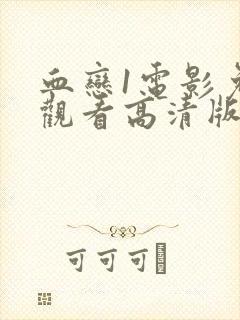 血戀1電影免
觀看高清版
可可可